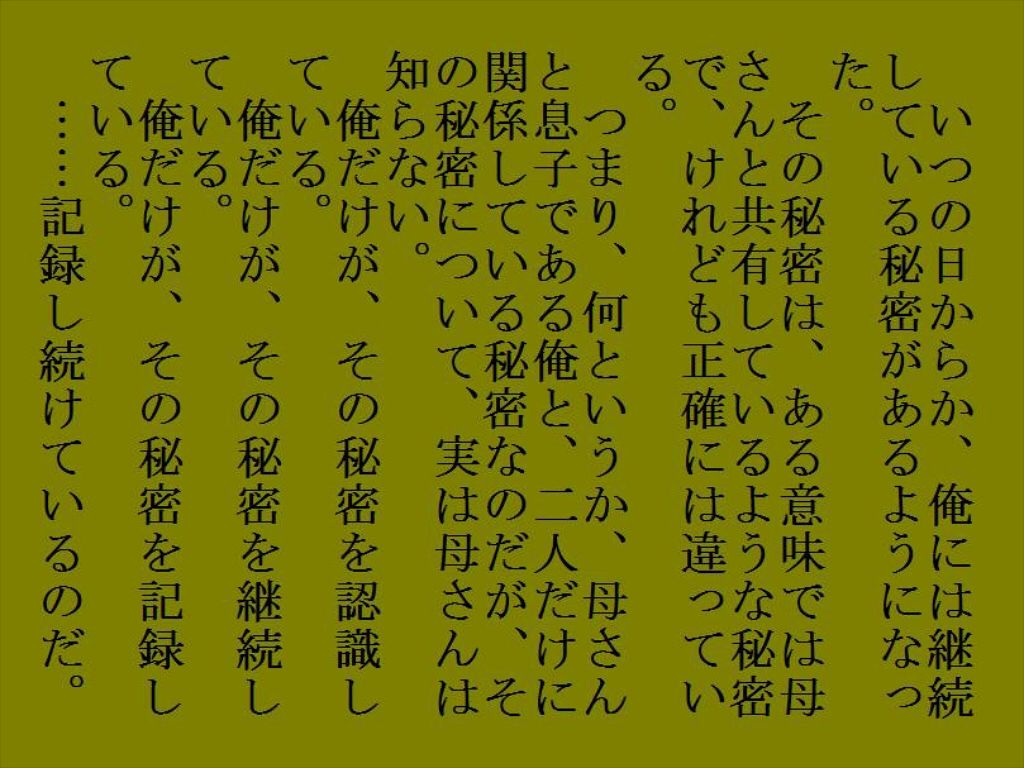 いつの日からか、俺には継続
している秘密があるようになっ
た。
　その秘密は、ある意味では母
さんと共有しているような秘密
で、けれども正確には違ってい
る。
　つまり、何というか、母さん
と息子である俺と、二人だけに
関係している秘密なのだが、そ
の秘密について、実は母さんは
知らない。
　俺だけが、その秘密を認識し
ている。
　俺だけが、その秘密を継続し
ている。
　俺だけが、その秘密を記録し
ている。
　……記録し続けているのだ。